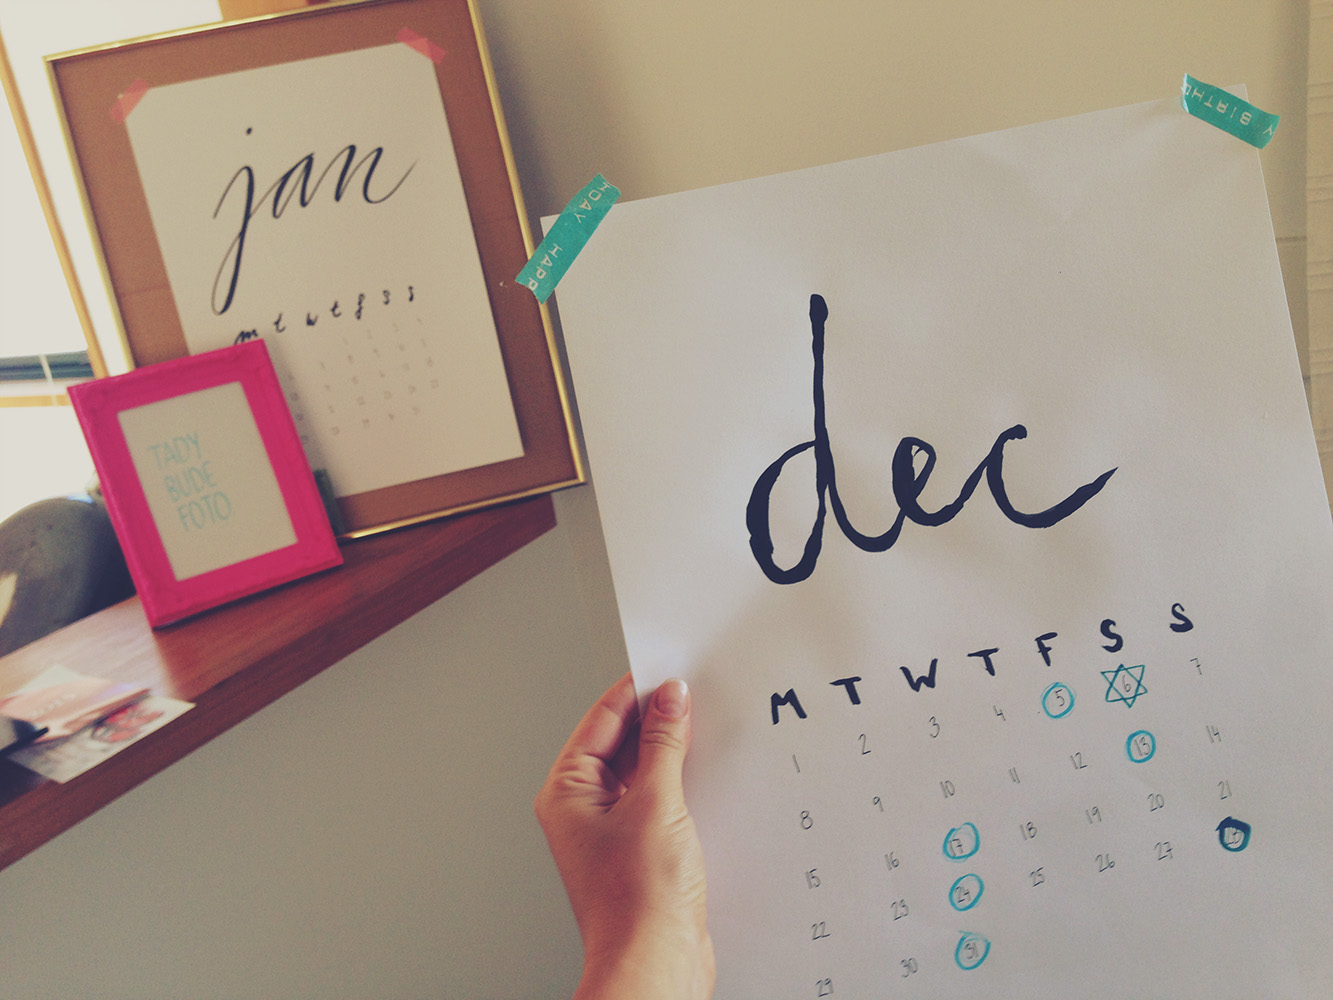 jan
m t w t f s s
TADY
BUDE
FOTO
HDAY HAPP
Y BIRTHD
dec
M T W T F S S
1 2 3 4 5 6 7
8 9 10 11 12 13 14
15 16 17 18 19 20 21
22 23 24 25 26 27 28
29 30 31